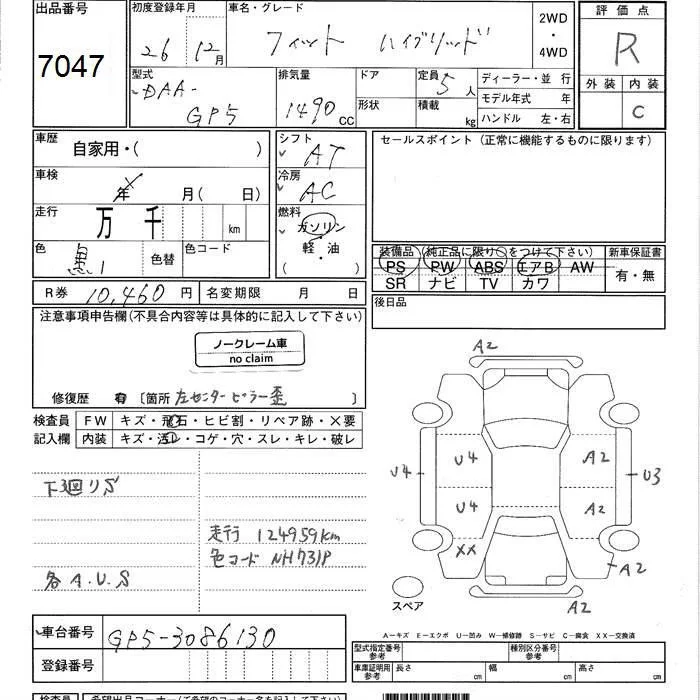 出品番号
7047
初度登録年月
26 12月
車名・グレード
フィット ハイブリッド
2WD
・
4WD
評価点
R
外装 内装
C
型式
DAA-
GP5
排気量
1490 CC
ドア
形状
定員 5 人
積載 kg
ディーラー・並 行
モデル年式 年
ハンドル 左・右
車歴
自家用・( )
車検
年 月( 日)
走行
万 千 km
色 黒 色替
色コード
シフト
AT
冷房
AC
燃料
ガソリン
・
軽・油
( )
セールスポイント(正常に機能するものに限ります)
装備品(純正品に限り○をつけて下さい)
PS PW ABS エアB AW
SR ナビ TV カワ
新車保証書
有・無
R券 10,460 円
名変期限 月 日
後日品
注意事項申告欄(不具合内容等は具体的に記入して下さい)
ノークレーム車
no claim
修復歴 有 〔箇所 左センターピラー歪 〕
検査員
記入欄
FW キズ・飛石・ヒビ割・リペア跡・×要
内装 キズ・汚レ・コゲ・穴・スレ・キレ・破レ
下廻りS
走行 124959km
色コード NH731P
各A.U.S
A2
U4
U4
A2
U3
U4
A2
XX
A2
A2
スペア
A-キズ E-エクボ U-凹み W-補修跡 S-サビ C-腐食 XX-交換済
車台番号
GP5-3086130
登録番号
型式指定番号
参考
種別区分番号
参考
車庫証明用
参考
長さ cm
幅 cm
高さ cm
検査員
希望出品コーナー(ご希望のコーナー名を記入して下さい)